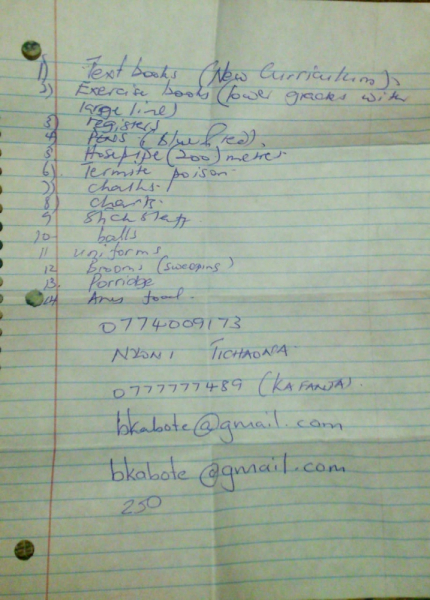 1) Text books (New Curriculum),
2) Exercise books (lower grades with
large line)
3) registers
4 PENS (blue & red),
5 Hosepipe (200) metres
6). Termite poison.
7) chalks
8) charts
9
10 balls
11 uniforms
12 Brooms (sweeping)
13. Porridge
14 food.
0774009173
TICHAONA
0777777489 (KAFANJA).
bkabote@gmail.com
bkabote@gmail.com
250